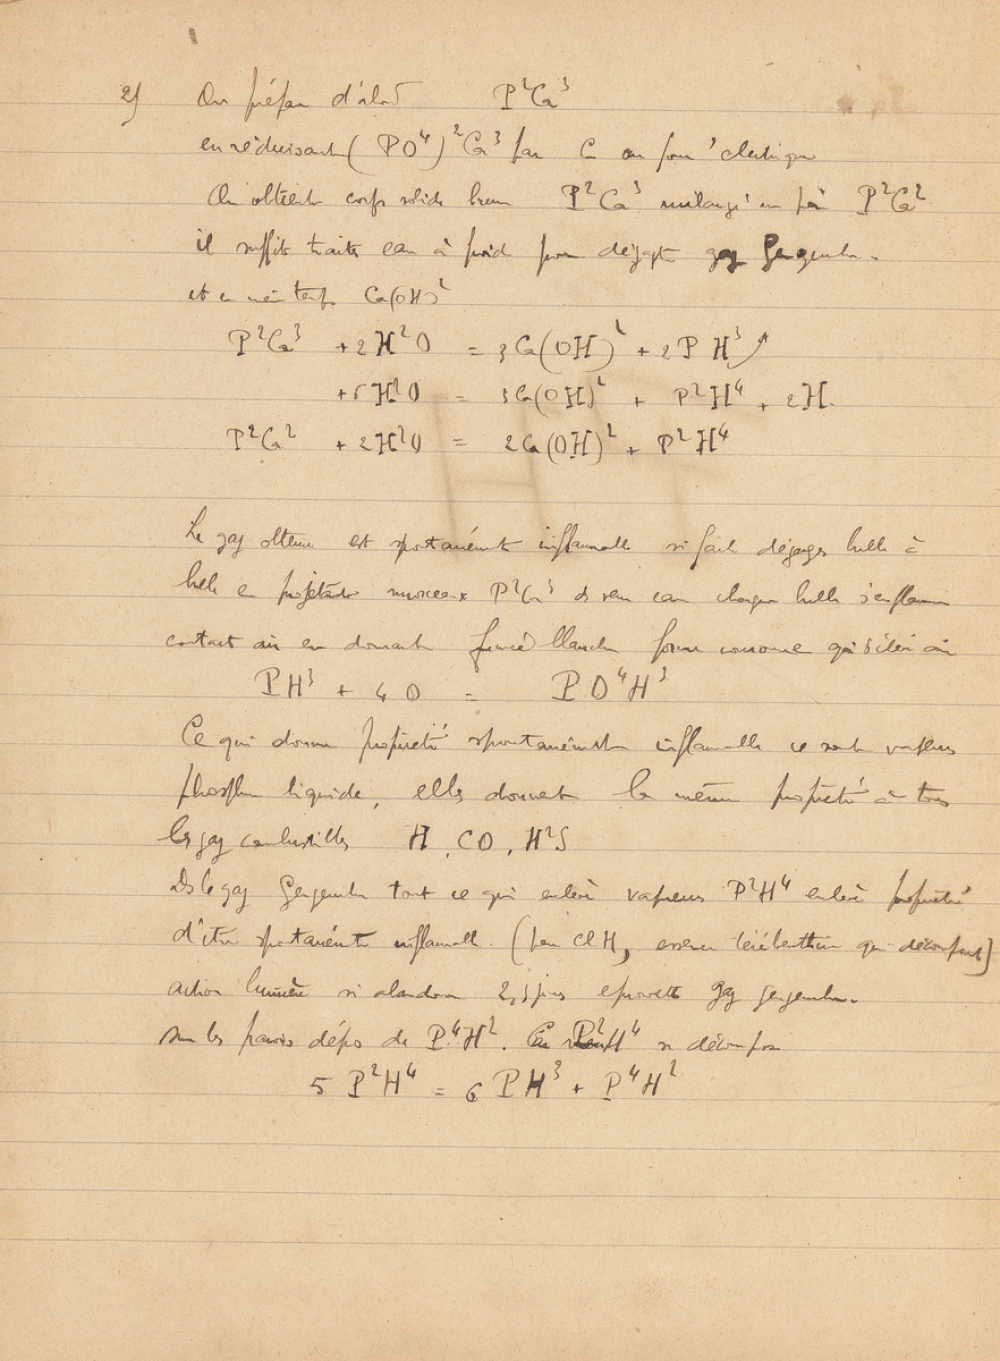 2) On prépare d'abord P²Ca³
en réduisant (PO⁴)²Ca³ par C au four électrique
On obtient corps solide brun P²Ca³ mélangé un P²Ca²
il suffit traiter eau à froid pour dégager gaz Gengembre.
et en même temps Ca(OH)²
P²Ca³ + 2H²O = 3Ca(OH)² + 2PH³
+6H²O = 3Ca(OH)² + P²H⁴ + 2H.
P²Ca² + 2H²O = 2Ca(OH)² + P²H⁴
Le gaz obtenu est spontanément inflammable si fait dégager bulle à
bulle en projetant morceaux P²Ca³ ds eau chaque bulle s'enflamme
contact air en donnant fumées blanches forme couronne qui s'élève air
PH³ + 4O = PO⁴H³
Ce qui donne propriété spontanément inflammable ce sont vapeurs
phosphure liquide, elles donnent la même propriété à tous
les gaz combustibles H, CO, H²S
Ds le gaz Gengembre tout ce qui enlève vapeurs P²H⁴ enlève propriété
d'être spontanément inflammable. (par ClH, essence térébenthine qui décomposent)
action lumière si abandonne 2, 3 jours éprouvette gaz gengembre.
sur les parois dépôt de P⁴H². P²H⁴ se décompose
5 P²H⁴ = 6 PH³ + P⁴H²